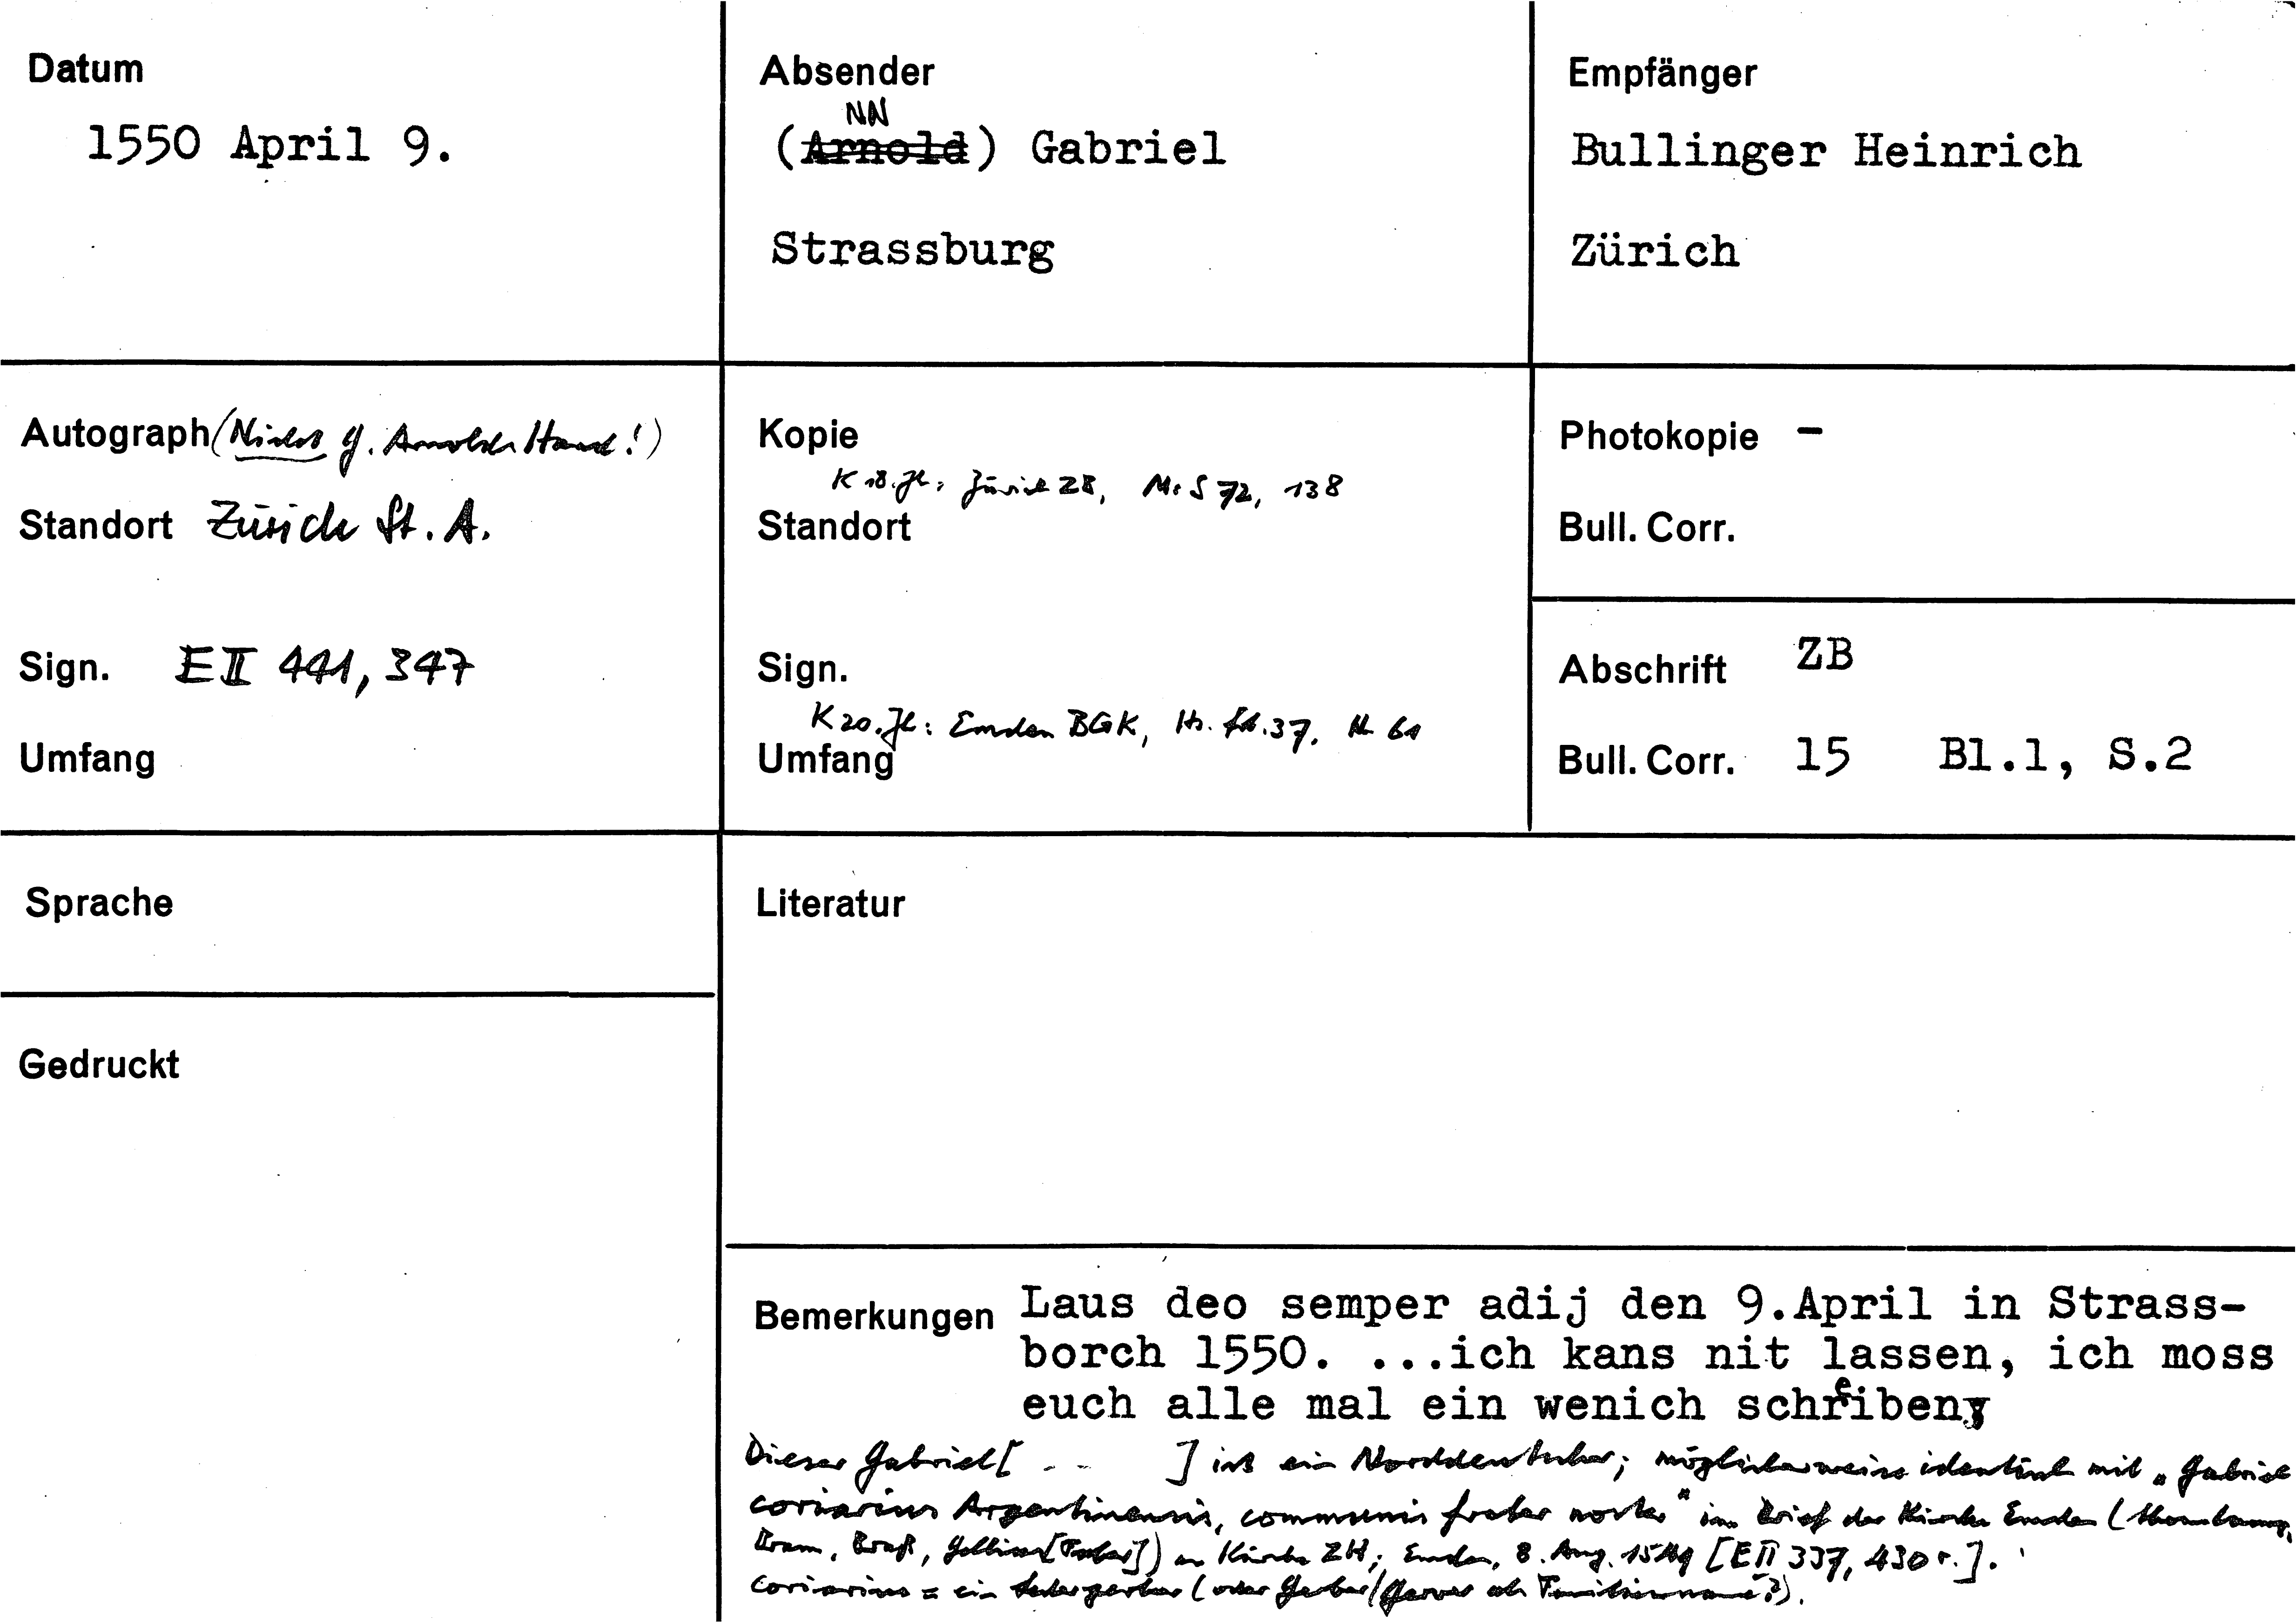 Datum
1550 April 9.
Absender
NN
(Arnold) Gabriel
Strassburg
Empfänger
Bullinger Heinrich
Zürich
Autograph (Nicht G. Arnolds Hand!)
Standort Zürich St. A.
Sign. E II 441, 347
Umfang
Kopie
K 18. Jh.: Zürich ZB, Ms S 72, 138
Standort
Sign.
K 20. Jh.: Emden BGK, Hs. fol. 37, N. 61
Umfang
Photokopie -
Bull. Corr.
Abschrift ZB
Bull. Corr. 15 Bl.1, S.2
Sprache
Gedruckt
Literatur
Bemerkungen Laus deo semper adij den 9.April in Strass-
borch 1550. ...ich kans nit lassen, ich moss
euch alle mal ein wenich schreiben
Dieser Gabriel [ . . ] ist ein Norddeutscher; möglicherweise identisch mit "Gabriel
coriarius Argentinensis, communis frater noster" im Brief der Kirche Emden (
Bram, ) an Kirche ZH; Emden, 8. Aug. 1549 [E II 337, 430 r.].
coriarius = ein Ledergerber (oder Gerber/Gerwer als Familienname?).